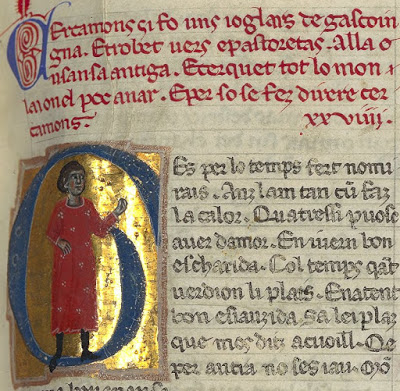 CErcamons si fo uns ioglars de gascoin
gna. Etrobet uers epastoretas. Alla u
sansa antiga. Ecerquet tot lo mon
lai on el poc anar. Eper so se fez dire cer
camons. xxviiii.
Es per lo temps fert nomi
rais. Anz lam tan cū faz
la calor. Quatressi puosc
auer damor. En iuern bon
escharida. Col temps qāt
uerdion li plais. En atent
bon esiauzida sa lei plaz
que mos ditz acuoill. Qe
per autra no ses iau.